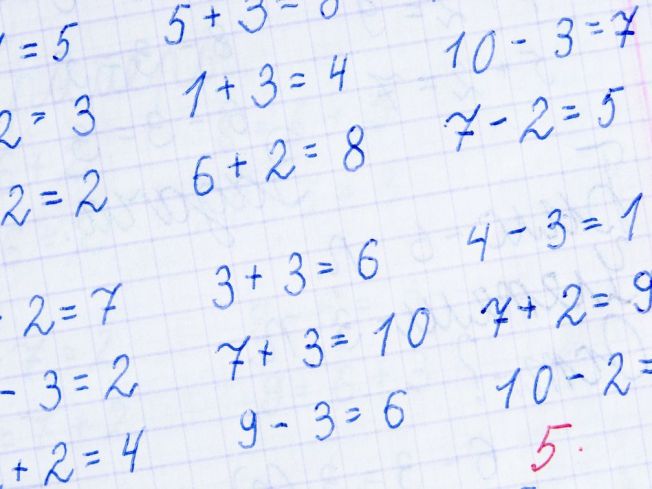 = 5
5 + 3 =
10 - 3 = 7
2 = 3
1 + 3 = 4
7 - 2 = 5
2 = 2
6 + 2 = 8
4 - 3 = 1
- 2 = 7
3 + 3 = 6
7 + 2 = 9
- 3 = 2
7 + 3 = 10
10 - 2 =
+ 2 = 4
9 - 3 = 6
5.